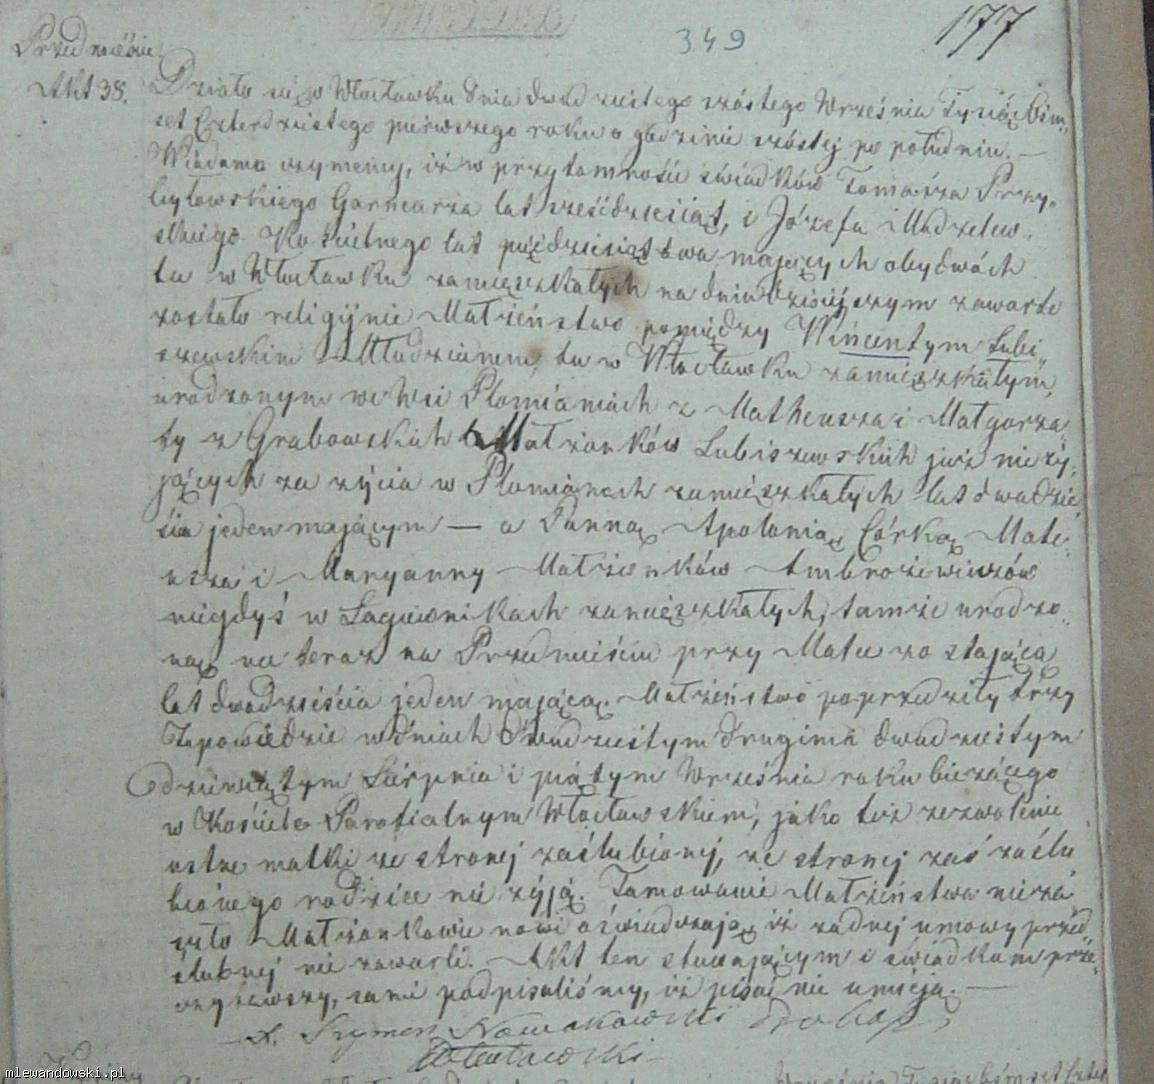 349
177
Przedmieście
Akt 38.
Działo się w Włocławku dnia dwudziestego szóstego Września Tysiąc ośm„
set Czterdziestego pierwszego roku o godzinie szóstej po południu. —
Wiadomo czyniemy, iż w przytomności świadków Tomasza Przy„
byłowskiego Garncarza lat sześćdziesiąt, i Józefa Madzelew„
skiego Kościelnego lat pięćdziesiąt dwa mających obydwóch
tu w Włocławku zamieszkałych na dniu dzisiejszym zawarte
zostało religijnie Małżeństwo pomiędzy Wincentym Lubi„
szewskim Młodzianem, tu w Włocławku zamieszkałym,
urodzonym we Wsi Płomianach z Matheusza i Małgorza„
ty z Grabowskich Małżonków Lubiszewskich już nie ży„
jących za życia w Płomianach zamieszkałych lat dwadzie„
ścia jeden mającym — a Panną Apolonią Córką Mate„
usza i Maryanny Małżonków Ambroziewiczów
niegdyś w Łagiewnikach zamieszkałych, tamże urodzo„
ną na teraz na Przedmieściu przy Matce zostającą
lat dwadzieścia jeden mającą. Małżeństwo poprzedziły trzy
Zapowiedzie w dniach dwudziestym drugim dwudziestym
dziewiątym Sierpnia i piątym Września roku bieżącego
w Kościele Parafialnym Włocławskiem, jako też zezwolenie
ustne matki ze stronej zaślubionej, ze stronej zaś zaślu
bionego rodzice nie żyją. Tamowanie Małżeństwa nie za
szło Małżonkowie nowi oświadczają iż żadnej umowy przed
ślubnej nie zawarli. Akt ten stawającym i świadkom prze„
czytawszy, sami podpisaliśmy, iż pisać nie umieją. —
X. Szymon Nowakowski
mlewandowski.pl